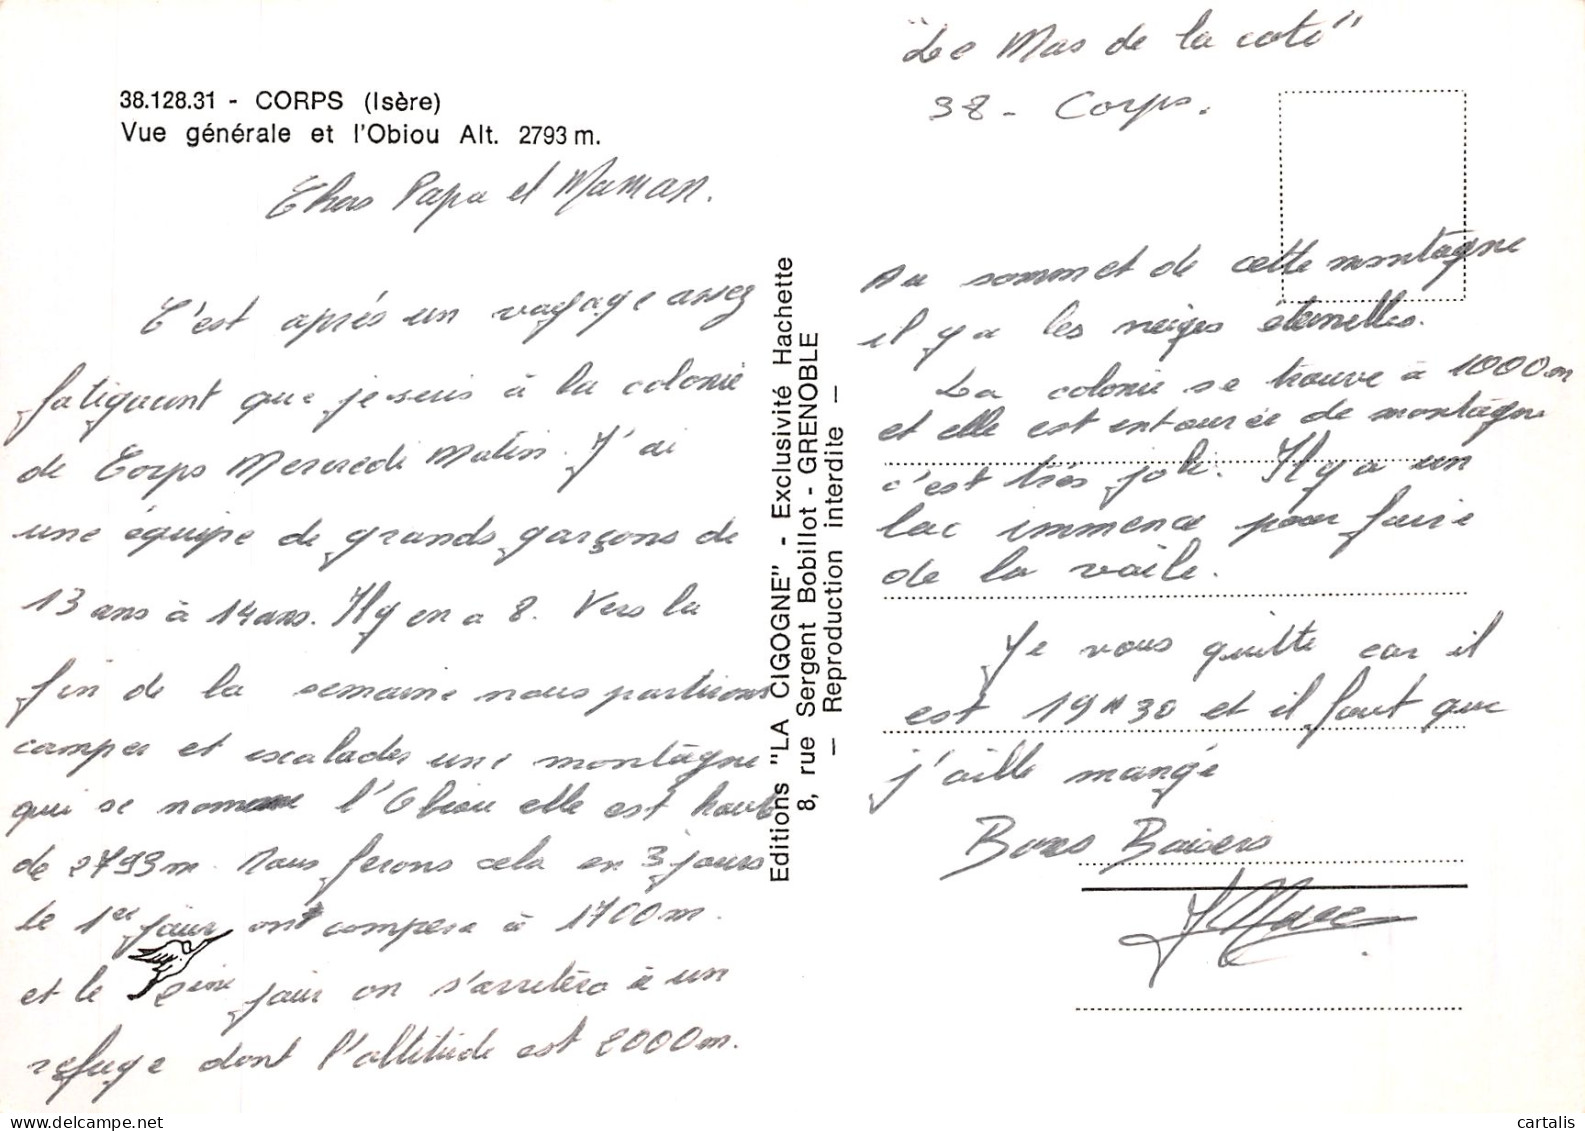 38.128.31 - CORPS (Isère)
Vue générale et l'Obiou Alt. 2793 m.
Chers Papa et Maman.
C'est après un voyage assez
fatiguant que je suis à la colonie
de Corps Mercredi Matin. J'ai
une équipe de grands garçons de
13 ans à 14 ans. Il y en a 8. Vers la
fin de la semaine nous partirons
camper et escalader une montagne
qui se nomme l'Obiou elle est haute
de 2793m. Nous ferons cela en 3 jours
le 1er jour on campera à 1700m.
et le 2eme jour on s'arrêtera à un
refuge dont l'altitude est 2000m.
Editions "LA CIGOGNE" - Exclusivité Hachette
8, rue Sergent Bobillot - GRENOBLE
— Reproduction interdite —
"Le Mas de la cote"
38 - Corps.
Au sommet de cette montagne
il y a les neiges éternelles.
La colonie se trouve à 1000m
et elle est entourée de montagne
c'est très joli. Il y a un
lac immence pour faire
de la voile.
Je vous quitte car il
est 19H30 et il faut que
j'aille mangé
Bons Baisers
J Marc
cartalis